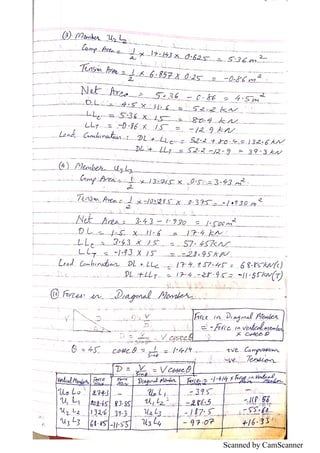 (3) Member U2L2
Comp. Area = 1/2 × 17.143 × 0.625 = 5.36 m²
Tension Area = 1/2 × 6.857 × 0.25 = -0.86 m²
Net Area = 5.36 - 0.86 = 4.5 m²
DL = 4.5 × 11.6 = 52.2 kN
LLc = 5.36 × 15 = 80.4 kN
LLT = -0.86 × 15 = -12.9 kN
Load Combination: DL + LLc = 52.2 + 80.4 = 132.6 kN
DL + LLT = 52.2 - 12.9 = 39.3 kN
(4) Member U3L3
Comp. Area = 1/2 × 13.715 × 0.5 = 3.43 m²
Tension Area = 1/2 × 10.285 × 0.375 = -1.930 m²
Net Area = 3.43 - 1.930 = 1.500 m²
DL = 1.5 × 11.6 = 17.4 kN
LLc = 3.43 × 15 = 51.45 kN
LLT = -1.93 × 15 = -28.95 kN
Load Combination DL + LLc = 17.4 + 51.45 = 68.85 kN (c)
DL + LLT = 17.4 - 28.95 = -11.55 kN (T)
Forces in Diagonal Member
Force in Diagonal Member
= -Force in vertical member
× cosec θ
θ = 45 cosec θ = = 1.414
+ve Compression
-ve Tension
D = V/sinθ = V cosec θ
Vertical Member Force Force Diagonal Member Forces = -1.414 × Force in vertical member
U0L0 - U0L1 -395 -
U1L1 83.85 U1L2 -286.5 -118.56
U2L2 132.6 39.3 U2L3 -187.5
U3L3 68.85 -11.55 U3L4 -97.07 +16.33
Scanned by CamScanner